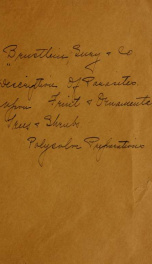 & Co.
Description Of Parasites
upon Fruit & Ornamental
Trees & Shrub
Polysulfur Preparations